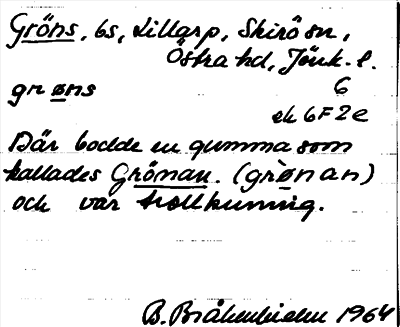 Gröns, bs, Lillarp, Skirö sn,
Östra hd, Jönk. l.
grøns 6
ek 6F2e
Där bodde en gumma som
kallades Grönan. (grønan)
och var trollkunnig.
B. Bråkenhielm 1964